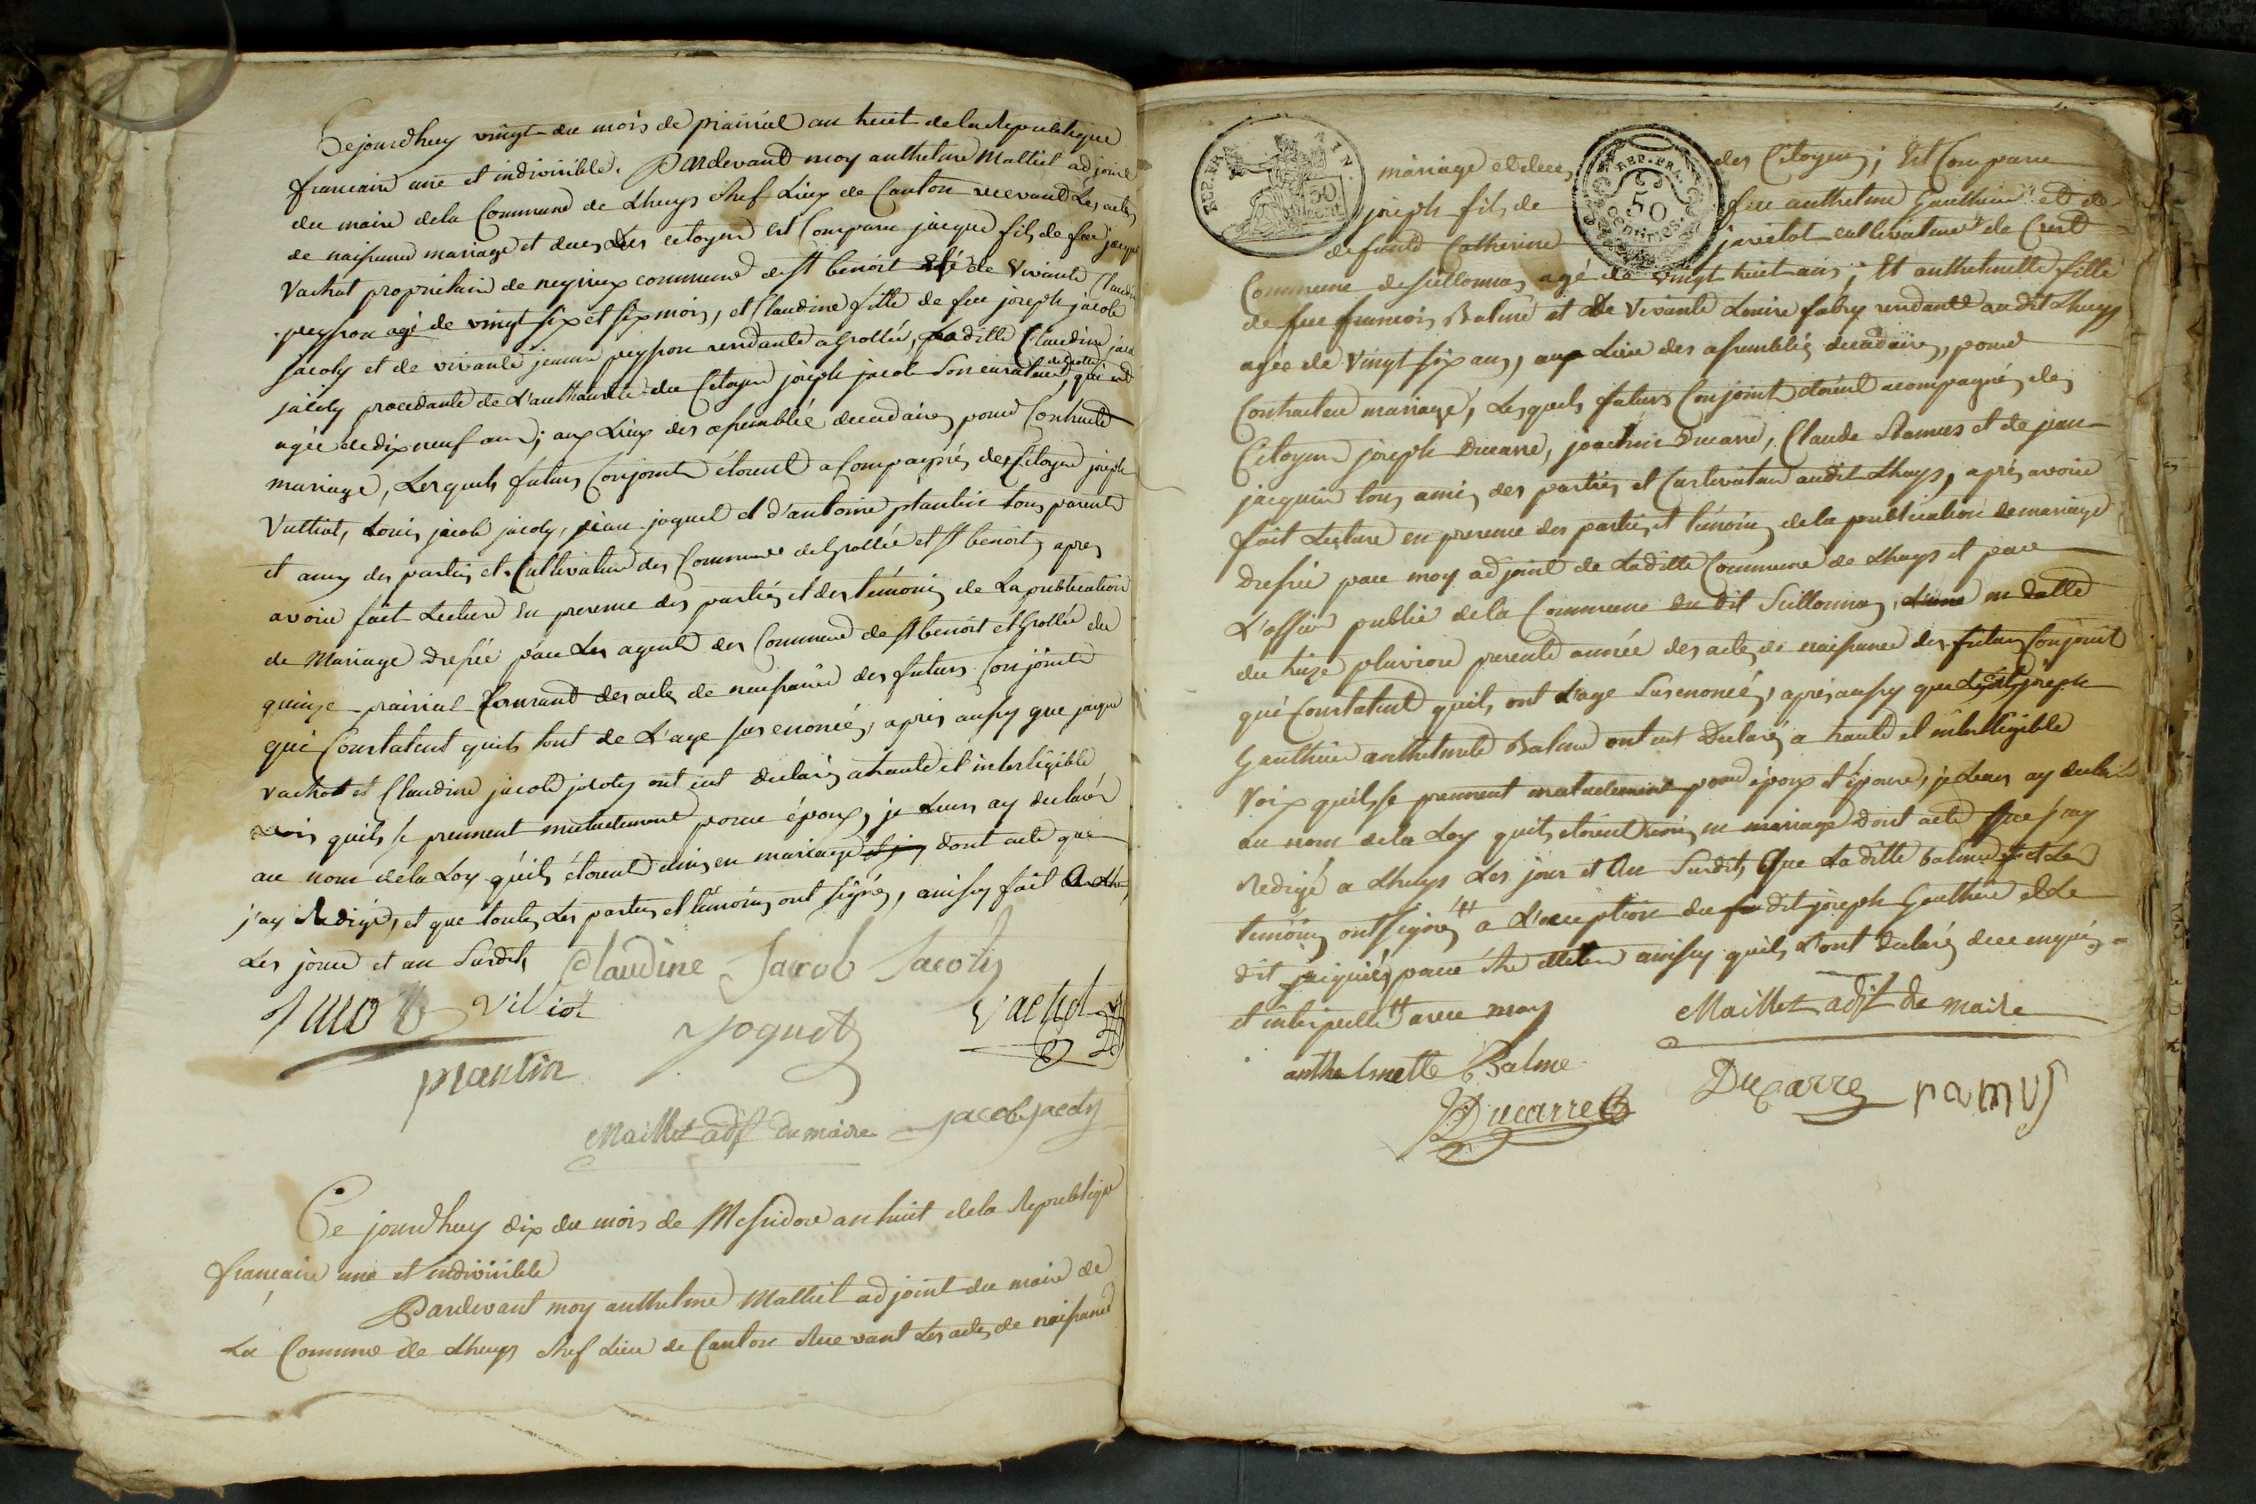 Cejourdhuy vingt du mois de prairial an huit de la Republique
francaise une et indivisible. Pardevant moy anthelme Malliet adjoint
du maire dela Commune de Lhuys chef Lieu de Canton recevant Les actes
de naissance mariage et deces des citoyens est Comparu jacque fils de feu jacque
Vachat proprietaire de neyrieux commune de st benoit et de vivante Claudine
peysson agé de vingt six et six mois, et Claudine fille de feu joseph jacob
jacoty et de vivante jeanne peysson residante a Grollée, Laditte Claudine jacob
jacoty procedante de L'authorité du Citoyen joseph jacob Son curateur, qui est
agée de dix neuf ans; aux Lieux des assemblée decadaires pour Contracter
mariage, Lesquels futurs Conjoints étoient acompagniés des Citoyens joseph
Vuthiot, Louis jacob jacoty, jean joquet et d'antoine plantin tous parents
et amy des parties et Cultivateur des Commune de Grollée et st benoit, apres
avoir fait Lecture en presence des parties et des témoins de La publication
de Mariage dressée par Les agents des Commune de st benoit et Grollée du
quinze prairial Courant des actes de naissance des futurs Conjoints
qui Constatent quils sont de L'age sus enoncée, apres aussy que jacque
vachat et Claudine jacob jacoty ont eut declarés a haute et interligible
voix quils se prennent mutuelement pour époux, je Leurs ay declarés
au nom dela Loy quils étoient unis en mariage dont acte que
j'ay Redigé, et que toutes Les parties et témoins ont signés, ainsy fait a Lhuys
Les jours et an Susdits
Claudine Jacob Jacoty
vachat
joquet
plantin
Maillet adjt du maire jacob jacoty
Ce jourdhuy dix du mois de Messidor an huit dela Republique
française une et indivisible
Pardevant moy anthelme Malliet adjoint du maire de
La Commune de Lhuys chef Lieu de Canton Recevant Les actes de naissance
REP. FRA. 50 cent.
REP. FRA. 50 centimes
mariage et deces des Citoyens; Est Comparu
joseph fils de feu anthelme Gauthier et de
defunte Catherine javelot cultivateur de Crest
Commune de seillonnas agé de vingt huit ans; Et anthelmette fille
de feu francois Balme et de Vivante Louise fabry residante audit Lhuys
agée de Vingt six ans, aux Lieu des assemblées decadaires, pour
Contracter mariage, Lesquels futurs Conjoints étoient acompagnés des
Citoyens joseph Ducarre, joachim Ducarre, Claude Ramus et de jean
jacquier tous amis des parties et Cultivateur audit Lhuys, aprés avoir
fait Lecture en presence des parties et témoins dela publication de mariage
dressée par moy adjoint de Laditte Commune de Lhuys et par
L'officier public dela Commune du dit Seillonnas, en datte
du treize pluviose presente année des actes de naissance des futurs Conjoints
qui Constatent quils ont L'age Susenoncée, aprés aussy que Ledit joseph
Gauthier anthelmette Balme ont eut Declarés a haute et intelligible
Voix quils se prennent mutuelement pour époux et épouse, je Leurs ay declaré
au nom dela Loy quils étoient unis en mariage dont acte que j'ay
Redigé a Lhuys Les jour et an Susdits, Que Laditte balme et Les
témoins ont signés a L'exception du dit joseph Gauthier et Le
dit jacquier, pour ainsy quils L'ont declarés de ce enquis
et interpellé avec moy
Maillet adjt de maire
anthelmette Balme
Ducarre
Ducarre
ramus